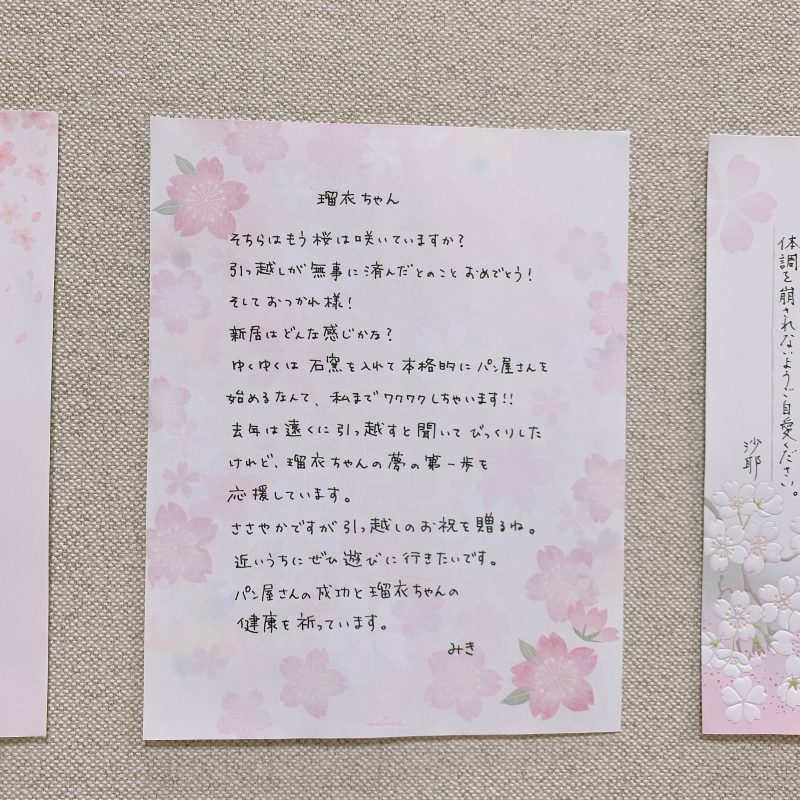 瑠衣ちゃん
そちらはもう桜は咲いていますか？
引っ越しが無事に済んだとのことおめでとう！
そしておつかれ様！
新居はどんな感じかな？
ゆくゆくは石窯を入れて本格的にパン屋さんを
始めるなんて、私までワクワクしちゃいます!!
去年は遠くに引っ越すと聞いてびっくりした
けれど、瑠衣ちゃんの夢の第一歩を
応援しています。
ささやかですが引っ越しのお祝を贈るね。
近いうちにぜひ遊びに行きたいです。
パン屋さんの成功と瑠衣ちゃんの
健康を祈っています。
みき
Hallmark
体調を崩されないようご自愛ください。
沙耶